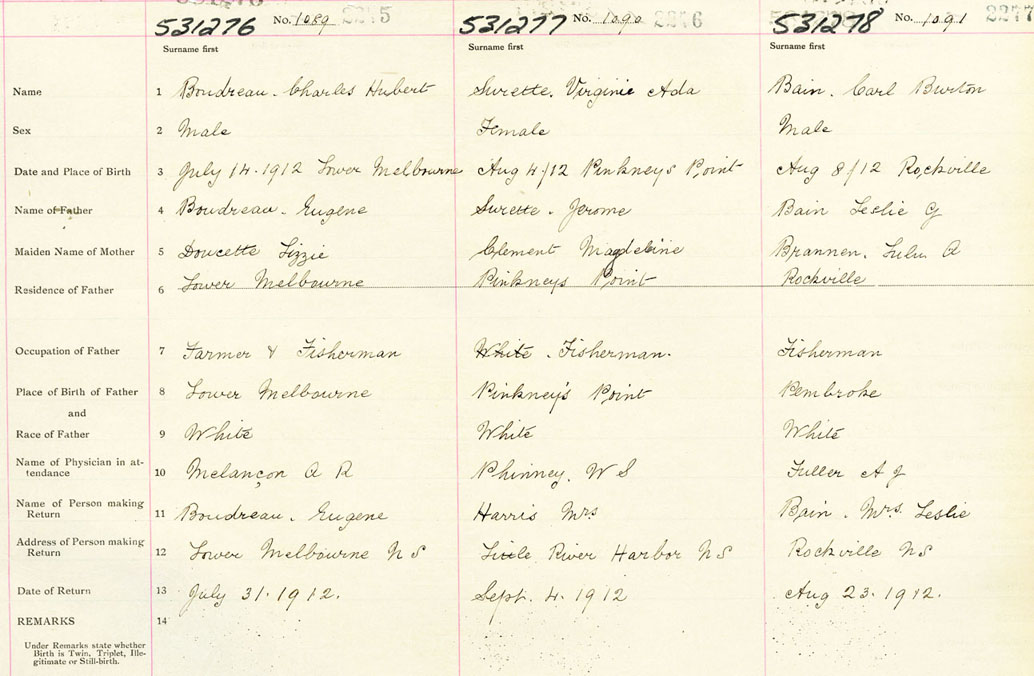 531276 No. 1089 2275 531277 No. 1090 2276 531278 No. 1091 2277
Surname first Surname first Surname first
Name 1 Boudreau. Charles Hubert Surette. Virginie Ada Bain. Carl Burton
Sex 2 Male Female Male
Date and Place of Birth 3 July 14. 1912 Lower Melbourne Aug 4/12 Pinkneys Point Aug 8/12 Rockville
Name of Father 4 Boudreau. Eugene Surette. Jerome Bain Leslie G
Maiden Name of Mother 5 Doucette Lizzie Clement Magdeline Brannen. Lulu A
Residence of Father 6 Lower Melbourne Pinkneys Point Rockville
Occupation of Father 7 Farmer & Fisherman White. Fisherman. Fisherman
Place of Birth of Father 8 Lower Melbourne Pinkney's Point Pembroke
and
Race of Father 9 White White White
Name of Physician in at-
tendance 10 Melançon A R Phinney. W S Fuller A J
Name of Person making
Return 11 Boudreau. Eugene Harris Mrs Bain. Mrs. Leslie
Address of Person making
Return 12 Lower Melbourne N S Little River Harbor N S Rockville N S
Date of Return 13 July 31. 1912. Sept. 4. 1912 Aug 23. 1912.
REMARKS 14
Under Remarks state whether
Birth is Twin, Triplet, Ille-
gitimate or Still-birth.